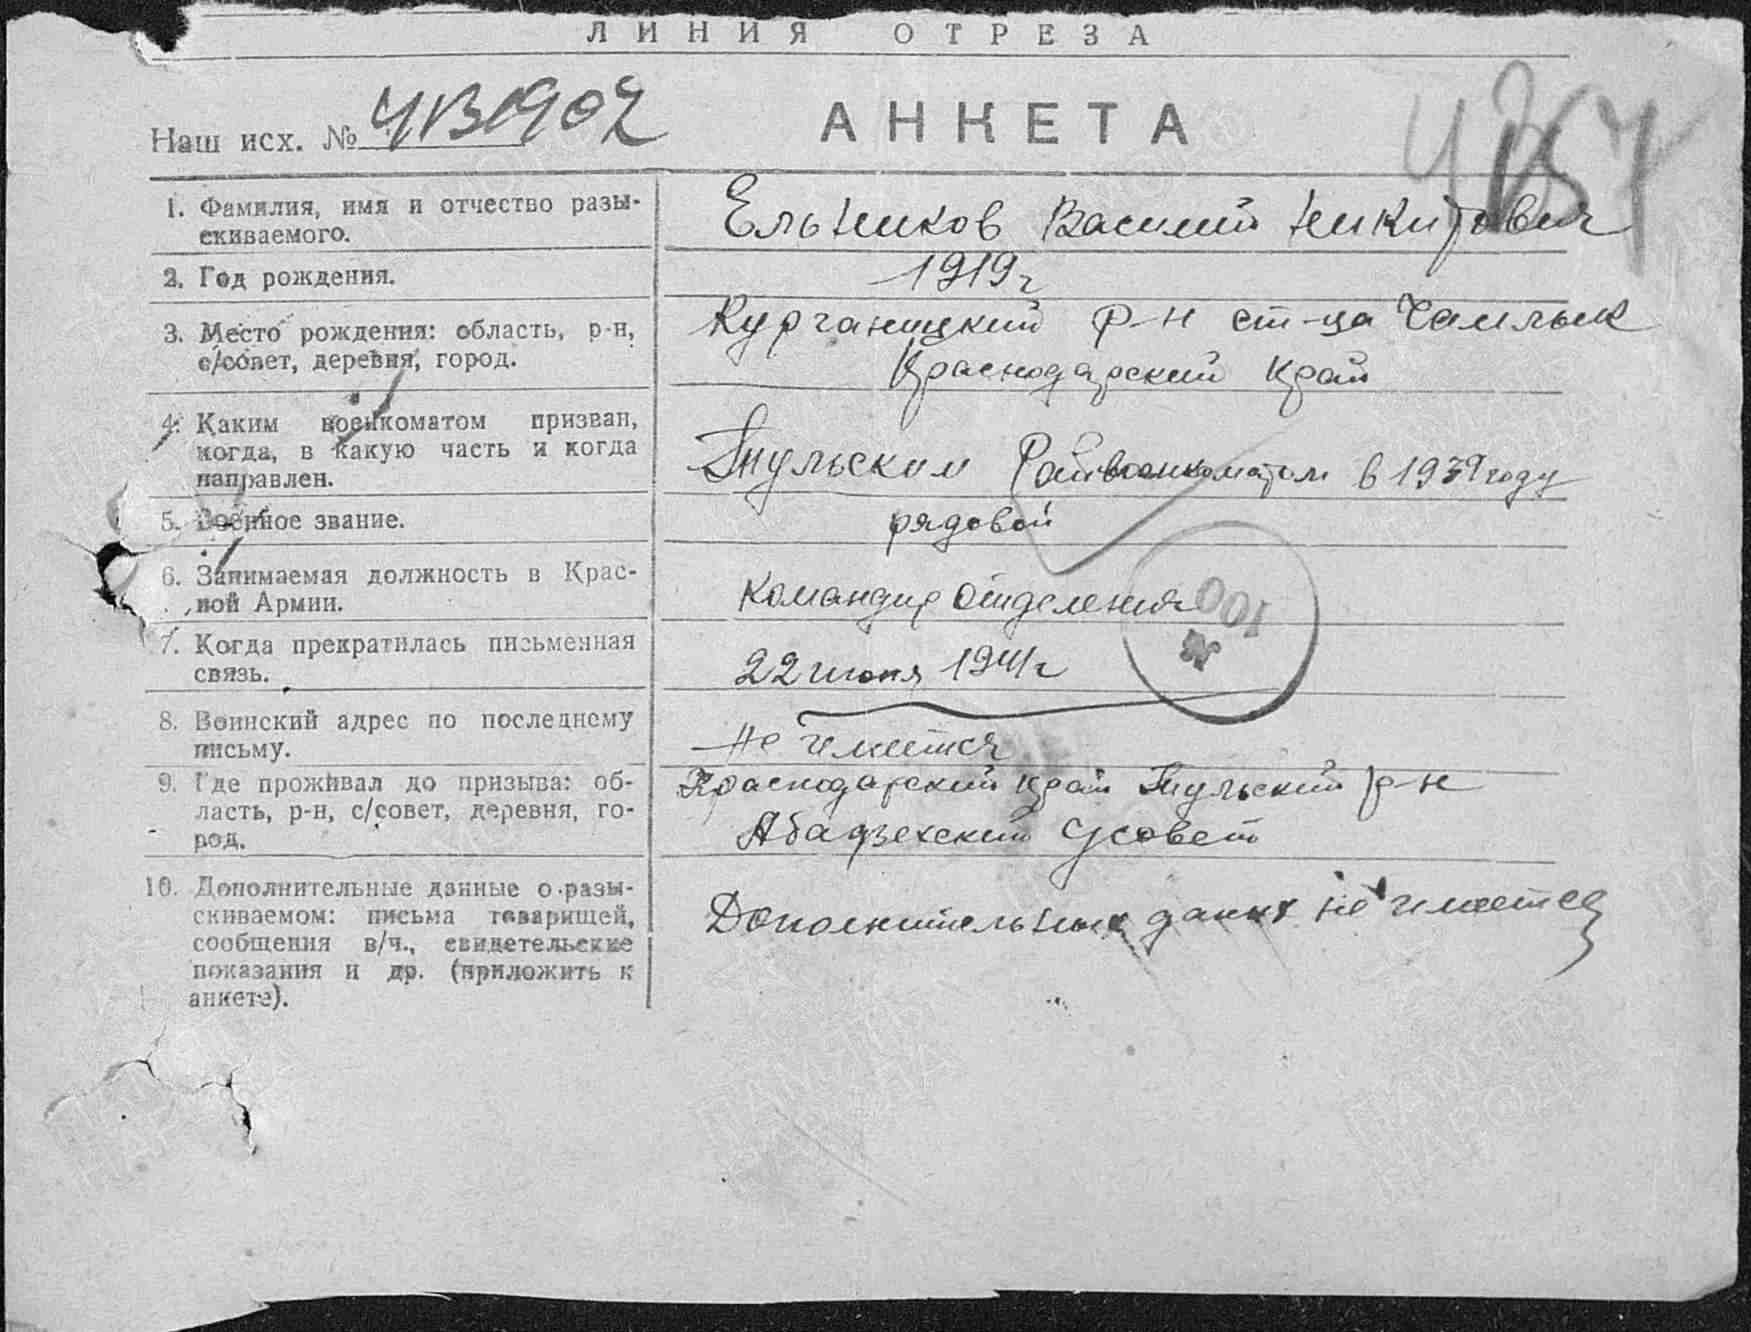 ЛИНИЯ ОТРЕЗА
Наш исх. №
АНКЕТА
1. Фамилия, имя и отчество разы-
скиваемого.
Ельников Василий Никитович
2. Год рождения.
1919г
3. Место рождения: область, р-н,
с/совет, деревня, город.
Курганицкий р-н ст-ца Чамлык
Краснодарский Край
4. Каким военкоматом призван,
когда, в какую часть и когда
направлен.
Тульским Райвоенкоматом в 1939 году
5. Военное звание.
рядовой
6. Занимаемая должность в Крас-
ной Армии.
Командир отделения
7. Когда прекратилась письменная
связь.
22 июня 1941г
8. Воинский адрес по последнему
письму.
Не имеется
9. Где проживал до призыва: об-
ласть, р-н, с/совет, деревня, го-
род.
Краснодарский край Тульский р-н
Абадзехский с/совет
10. Дополнительные данные о разы-
скиваемом: письма товарищей,
сообщения в/ч., свидетельские
показания и др. (приложить к
анкете).
Дополнительных даных не имеется
001
ПАМЯТЬ
НАРОДА